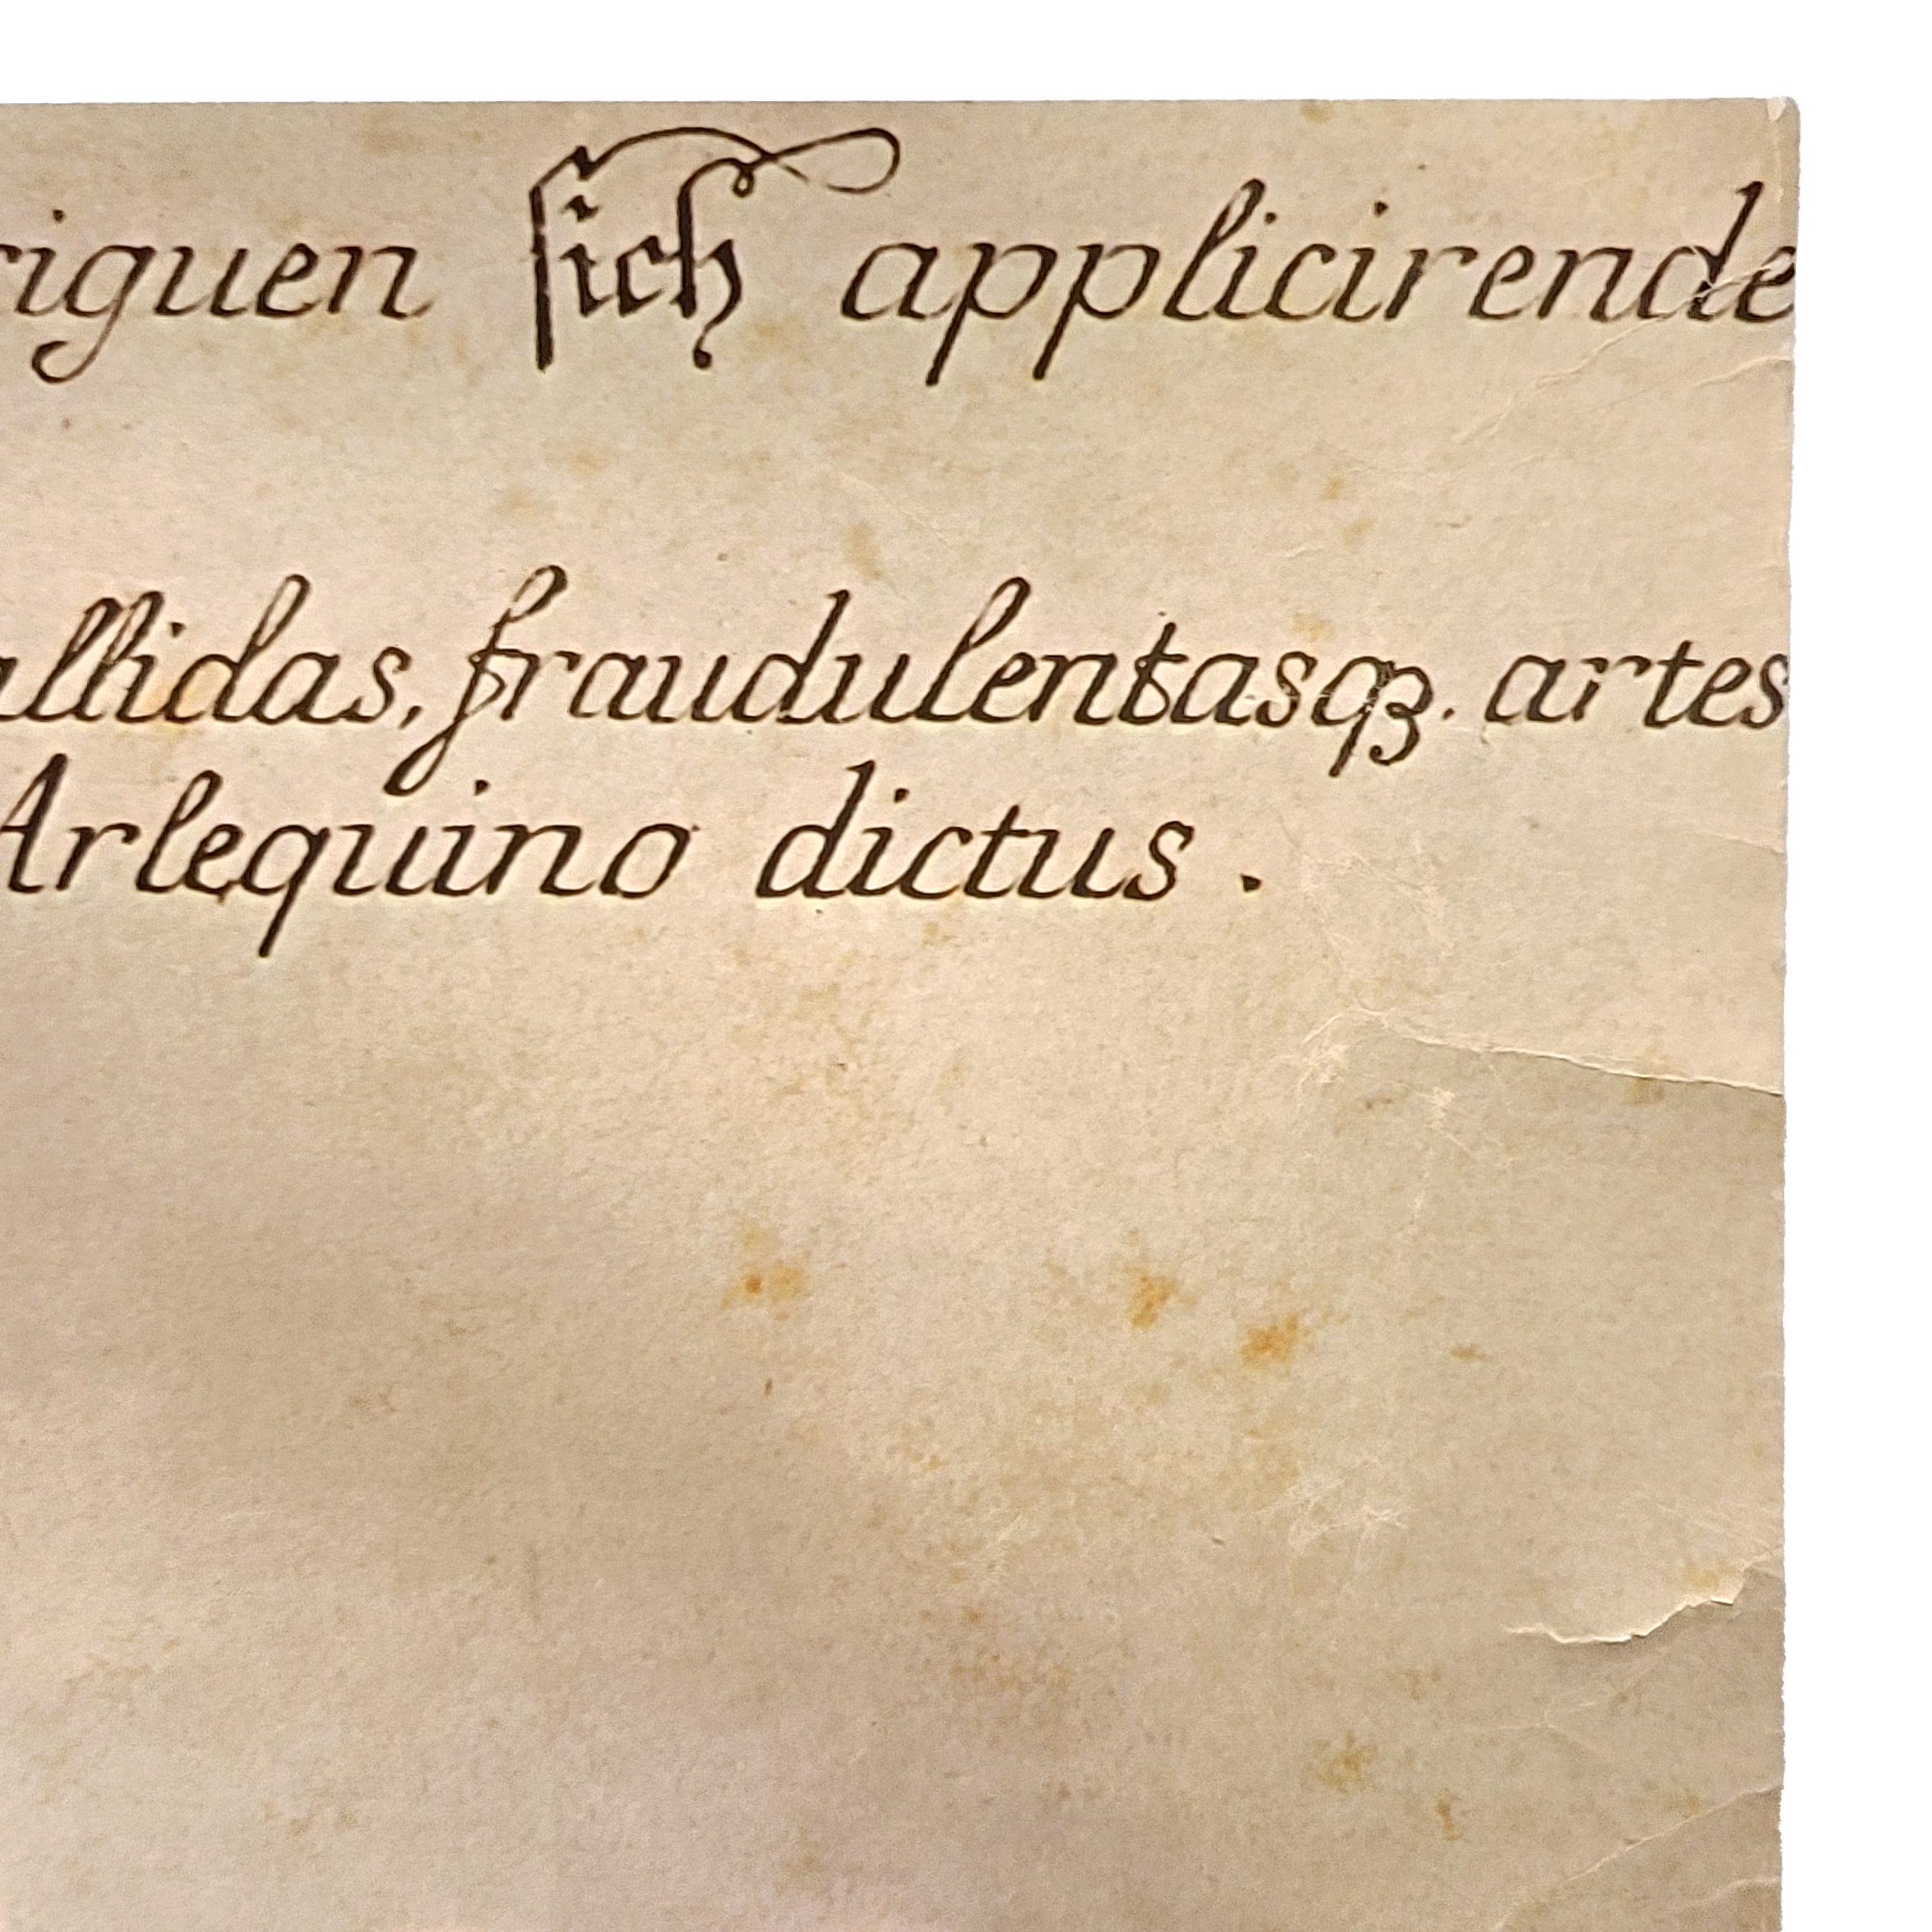 riguen sich applicirende
allidas, fraudulentasqꝫ. artes
Arlequino dictus.